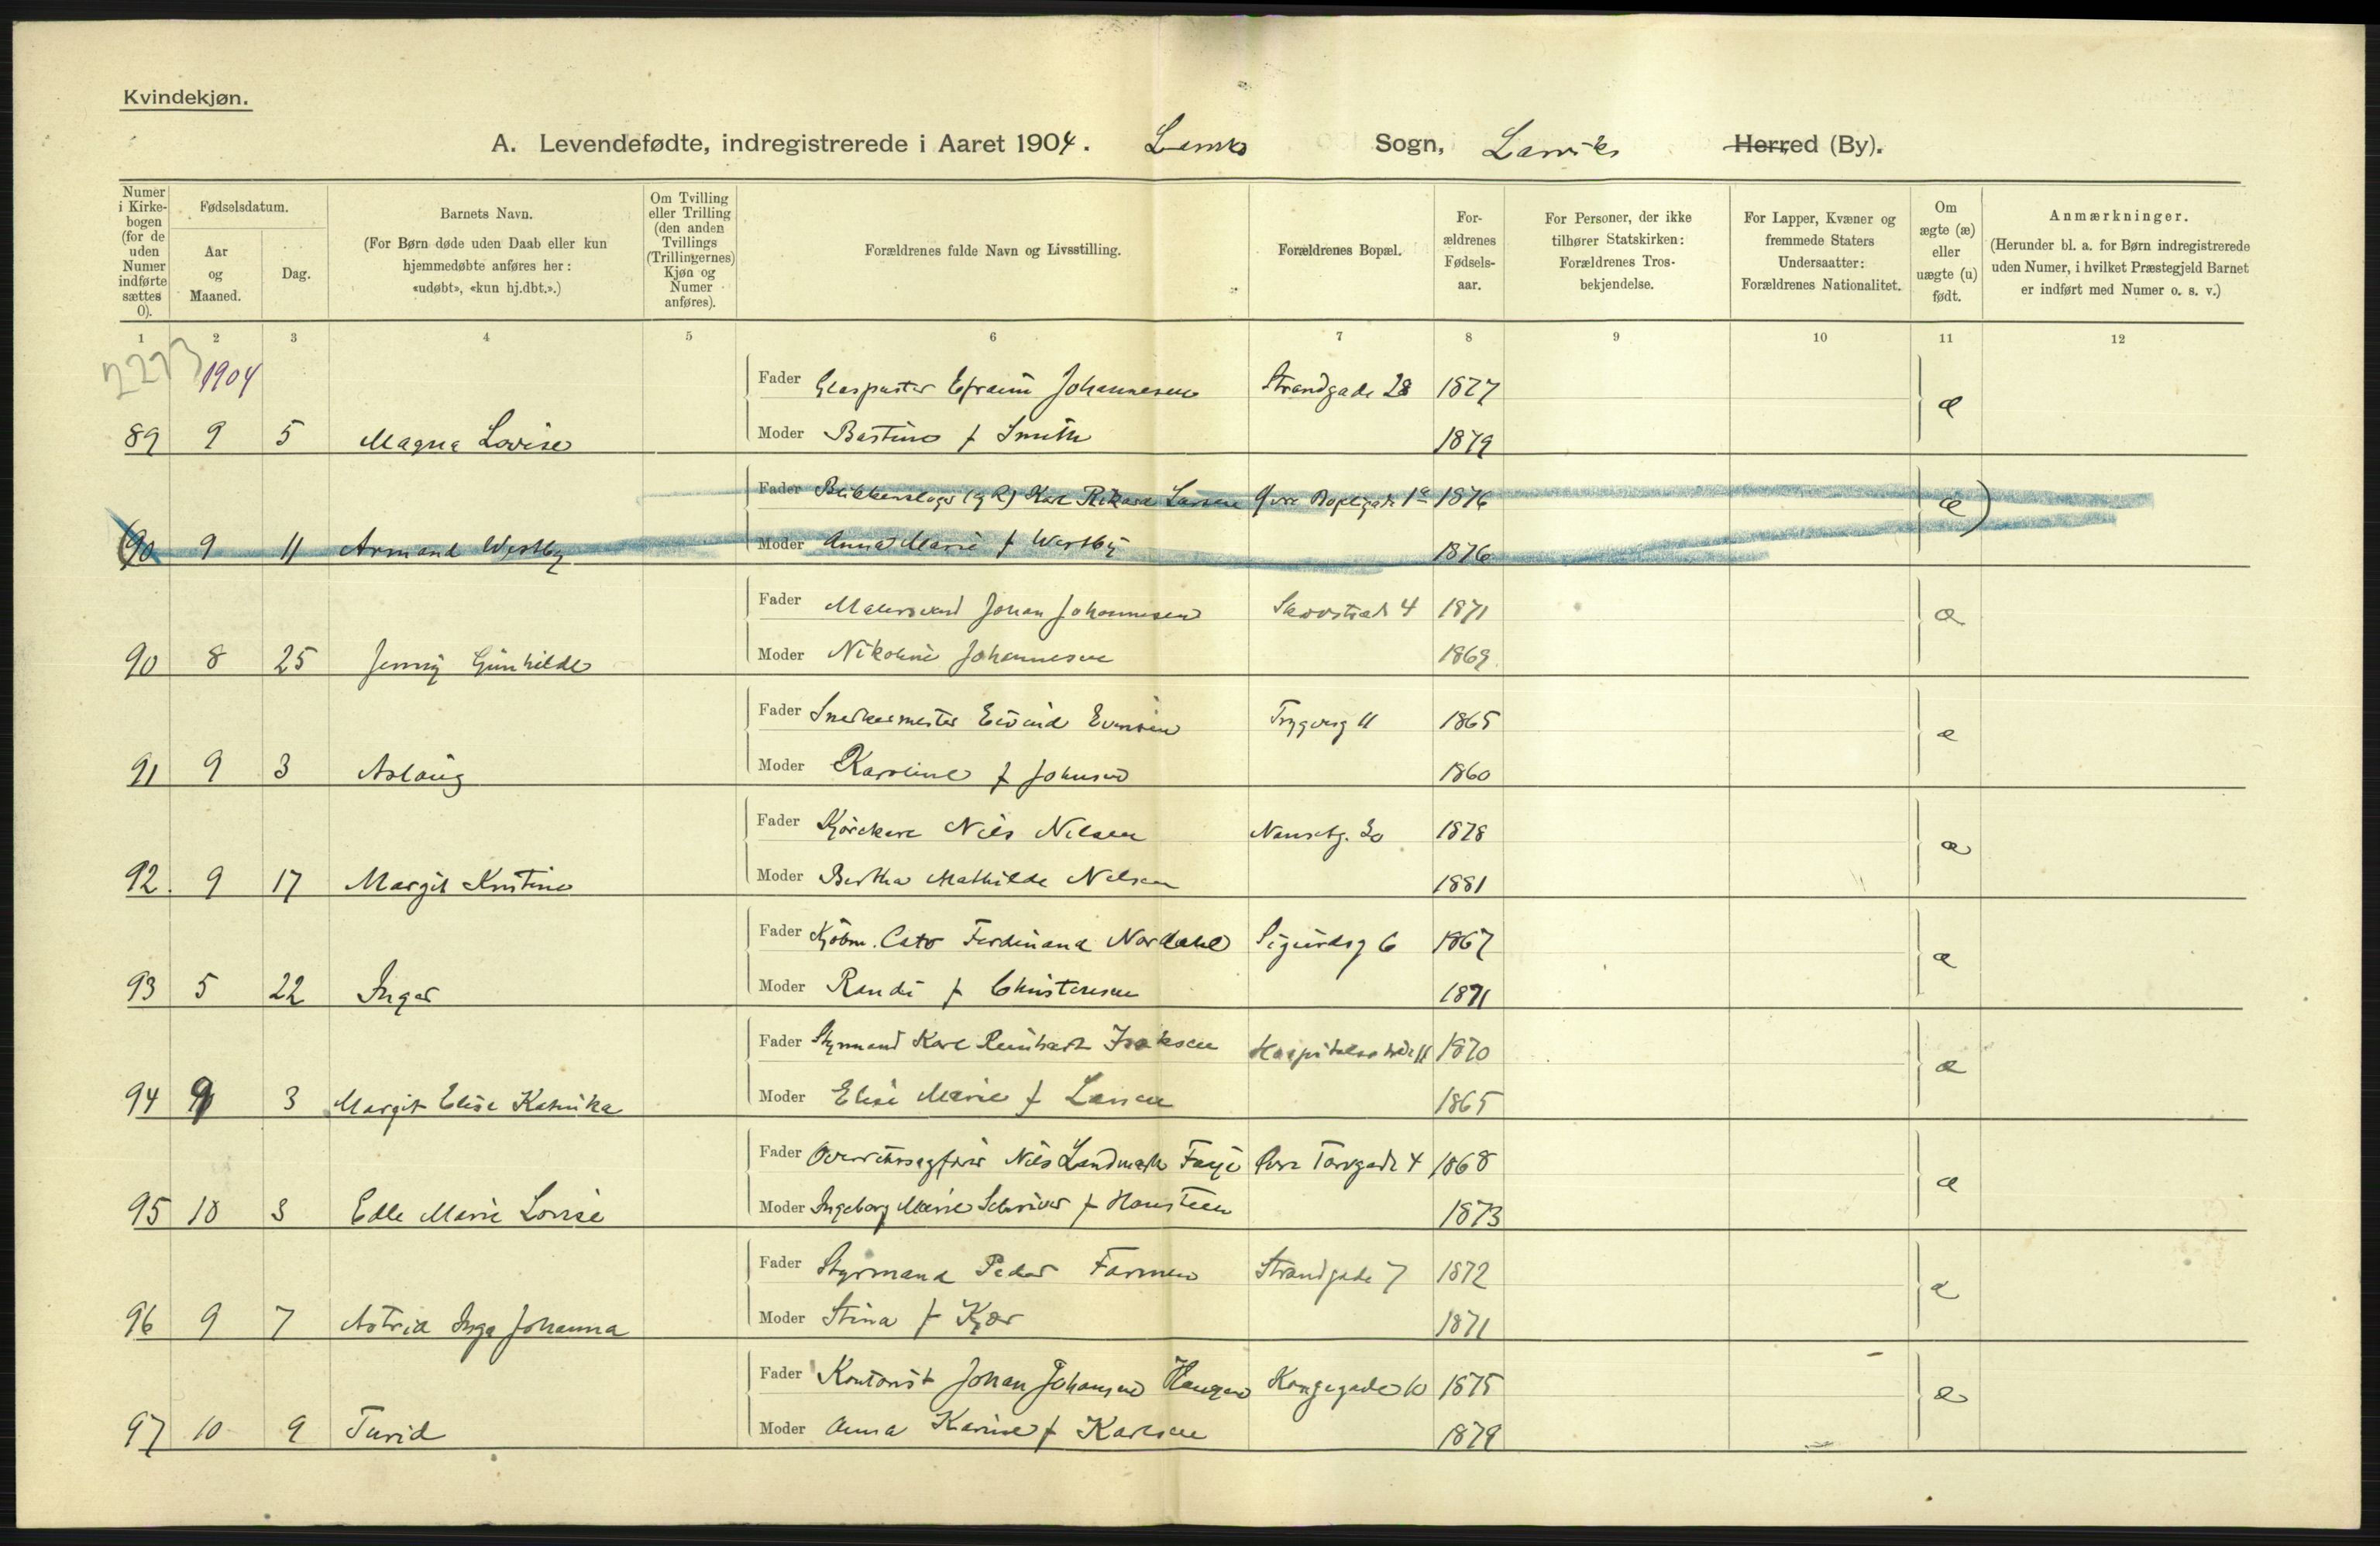 Kvindekjøn.
A. Levendefødte, indregistrerede i Aaret 1904. Larviks Sogn, Larviks Herred (By).
Numer i Kirkebogen (for de uden Numer indførte sættes 0).
Fødselsdatum.
Aar og Maaned.
Dag.
Barnets Navn.
(For Børn døde uden Daab eller kun hjemmedøbte anføres her: «udøbt», «kun hj.dbt.».)
Om Tvilling eller Trilling (den anden Tvillings (Trillingernes) Kjøn og Numer anføres).
Forældrenes fulde Navn og Livsstilling.
Forældrenes Bopæl.
Forældrenes Fødselsaar.
For Personer, der ikke tilhører Statskirken: Forældrenes Trosbekjendelse.
For Lapper, Kvæner og fremmede Staters Undersaatter: Forældrenes Nationalitet.
Om ægte (æ) eller uægte (u) født.
Anmærkninger.
(Herunder bl. a. for Børn indregistrerede uden Numer, i hvilket Præstegjeld Barnet er indført med Numer o. s. v.)
1 2 3 4 5 6 7 8 9 10 11 12
1904
Fader Glaspuster Efraim Johannesen Strandgade 28 1877 æ
89 9 5 Magna Lovise Moder Bastine f Smith 1879
Fader Blikkenslager Karl Rikard Larsen 1876 æ
(90 9 11 Armand Westby Moder Anna Marie f Westby 1876
Fader Malersvend Johan Johannesen 4 1871 æ
90 8 25 Jenny Gunhilde Moder Nikoline Johannesen 1869
Fader Snedkermester Eivind Evensen Trygvesg 11 1865 æ
91 9 3 Aslaug Moder Karoline f Johnsen 1860
Fader Nils Nilsen Nansetg. 30 1878 æ
92 9 17 Margit Kristine Moder Bertha Mathilde Nilsen 1881
Fader Kjøbm. Cato Ferdinand Nordahl Sigurdsg 6 1867 æ
93 5 22 Inger Moder Randi f Christensen 1871
Fader Styrmand Karl Reinhart Isaksen Hospitalstræde 11 1870 æ
94 9 3 Margit Elise Katinka Moder Elise Marie f Larsen 1865
Fader Overretssagfører Nils Landmark Faye Øvre Torvgade 4 1868 æ
95 10 3 Edle Marie Lovise Moder Ingeborg Marie Schriver f Hansteen 1873
Fader Styrmand Peder Farmen Strandgade 7 1872 æ
96 9 7 Astrid Inga Johanna Moder Stina f Kjær 1871
Fader Kontorist Johan Johansen Haugen Kongegade 10 1875 æ
97 10 9 Turid Moder Anna Karine f Karlsen 1879